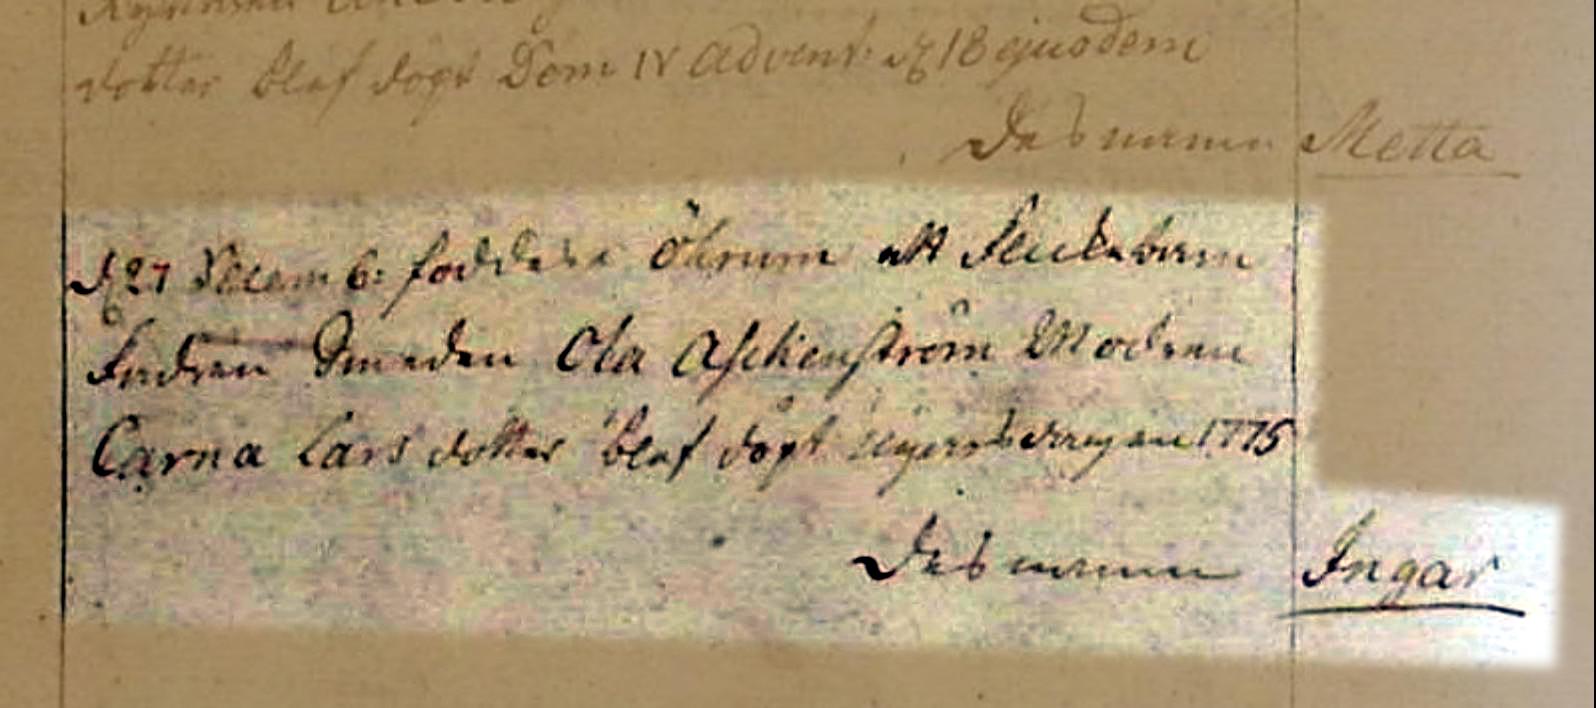 dotter blef döpt Dom IV Advent: d 18 ejusdem
Des namn Metta
d 27 Decemb: föddes i Öhrum ett Flickebarn
Fadren Smeden Ola Askenström Modren
Carna Lars dotter blef döpt Nyårsdagen 1775
Des namn Ingar